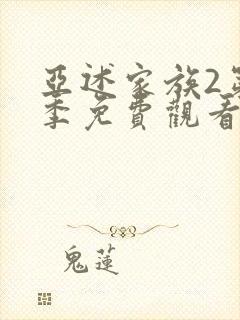 亞述家族2第
季免費觀看
鬼蓮